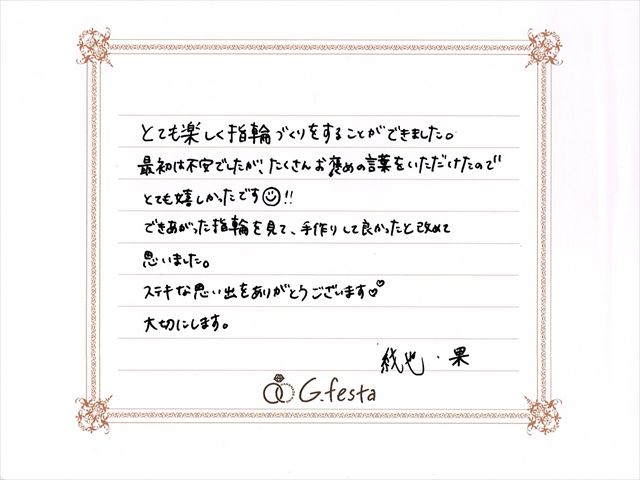 とても楽しく指輪づくりをすることができました。
最初は不安でしたが、たくさんお褒めの言葉をいただけたので
とても嬉しかったです☺!!
できあがった指輪を見て、手作りして良かったと改めて
思いました。
ステキな思い出をありがとうございます♡♡
大切にします。
也・果
G.festa